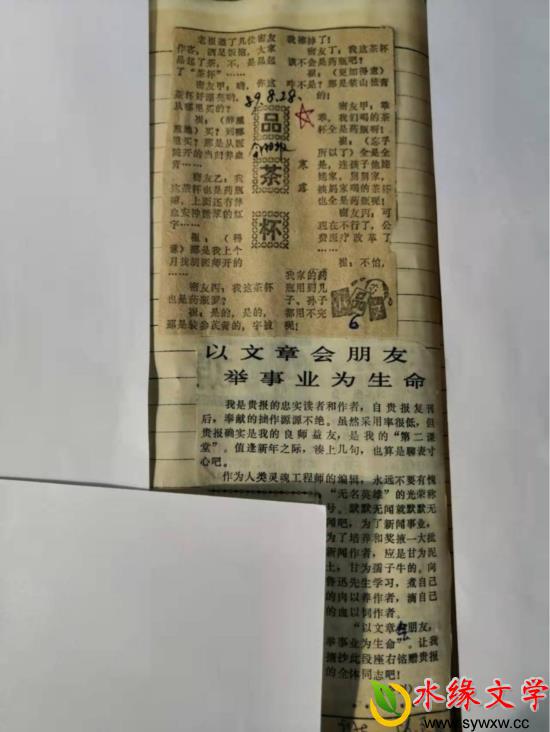 老崔邀了几位密友
作客,酒足饭饱,大家
品起了茶,不,是品起
了“茶杯”……
密友甲:嗬,你这
茶杯好漂亮哟,
从哪里买的?
崔:(醉醺
醺地)买?到哪
里买?那是从医
院开的当归养血
膏……
密友乙:我
这茶杯也是药瓶
嘛,上面还有养
血安神糖浆的红
字……
崔:(得
意)那是我上个
月找胡医师开的
……
密友丙:我这茶杯
也是药瓶罗?
崔:是的,是的,
那是装参茸膏的,字被
我擦掉了!
密友丁:我这茶杯
该不会是药瓶吧?
崔:(更加得意)
咋不是?那是
的!
密友甲:乖
乖,我们喝的茶
杯全是药瓶啊!
崔:(忘乎
所以了)全是全
是,连孩子他姥
姥家,舅舅家,
姨妈家喝的茶杯
也全是药瓶呢!
密友丙:可
现在不行了,公
费医疗改革了
……
崔:不怕,
我家的药
瓶用到儿
子、孙子
都用不完
呢!
89.8.28.
品
茶
杯
寒
露
6
以文章会朋友
举事业为生命
我是贵报的忠实读者和作者,自贵报复刊
后,奉献的拙作源源不绝。虽然采用率很低,但
贵报确实是我的良师益友,是我的“第二课
堂”。值逢新年之际,凑上几句,也算是聊表寸
心吧。
作为人类灵魂工程师的编辑,永远不要有愧
“无名英雄”的光荣称
号。默默无闻就默默无
闻吧,为了新闻事业,
为了培养和奖掖一大批
新闻作者,应是甘为泥
土,甘为孺子牛的。向
鲁迅先生学习,煮自己
的肉以养作者,滴自己
的血以饲作者。
“以文章会朋友,
举事业为生命”。让我
摘抄此段座右铭赠贵报
的全体同志吧!
水缘文学
www.sywxw.cc